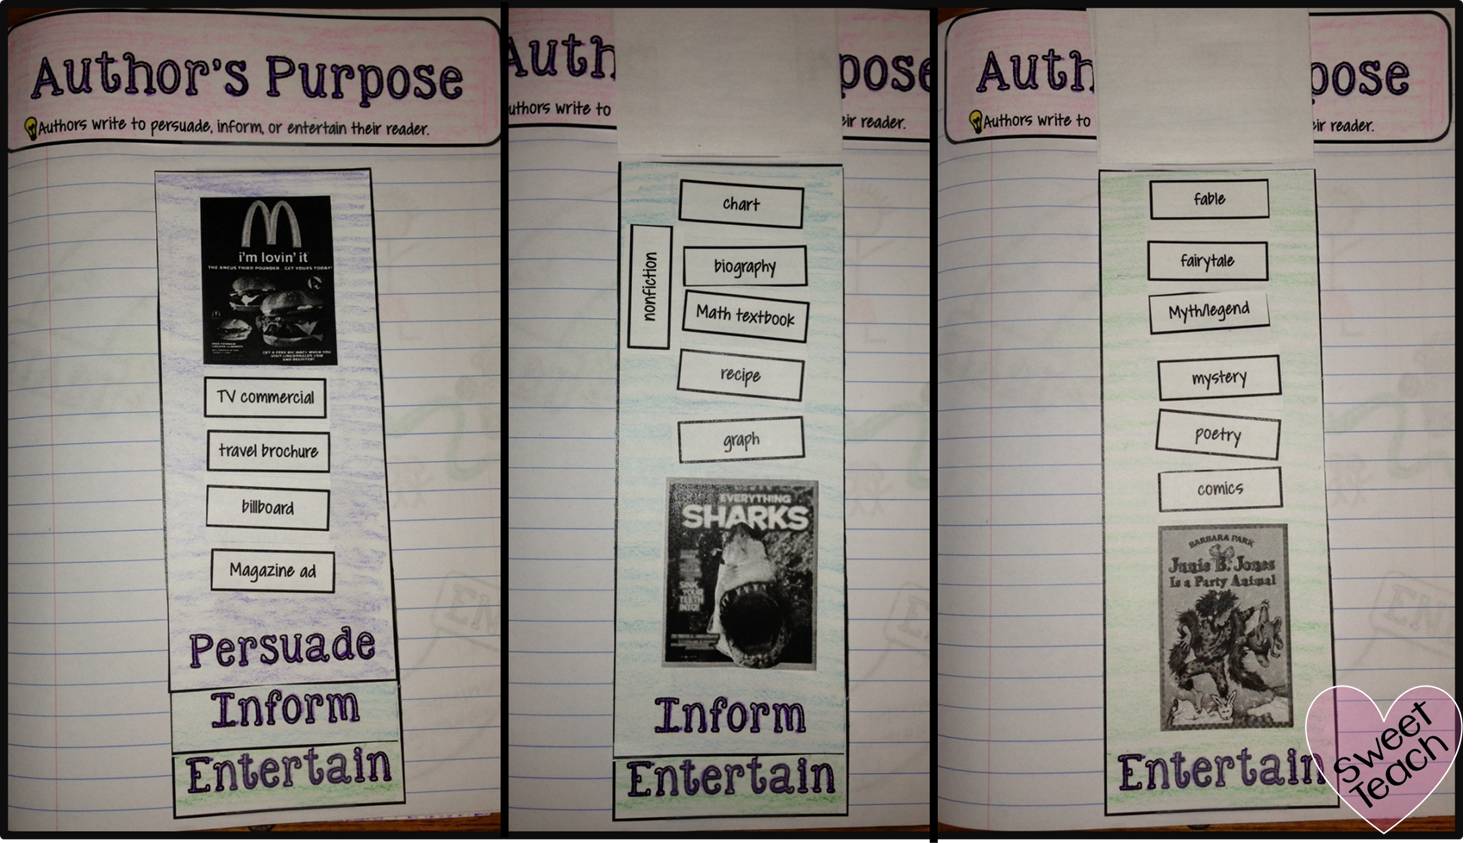 Author's Purpose
Authors write to persuade, inform, or entertain their reader.
i'm lovin' it
THE ANGUS THIRD POUNDER. GET YOURS TODAY!
TV commercial
travel brochure
billboard
Magazine ad
Persuade
Inform
Entertain
Auth pose
uthors write to eir reader.
chart
nonfiction
biography
Math textbook
recipe
graph
EVERYTHING
SHARKS
SINK
YOUR
TEETH
INTO
Inform
Entertain
Auth pose
Authors write to eir reader.
fable
fairytale
Myth/legend
mystery
poetry
comics
BARBARA PARK
Junie B. Jones
Is a Party Animal
Entertain
Sweet
Teach